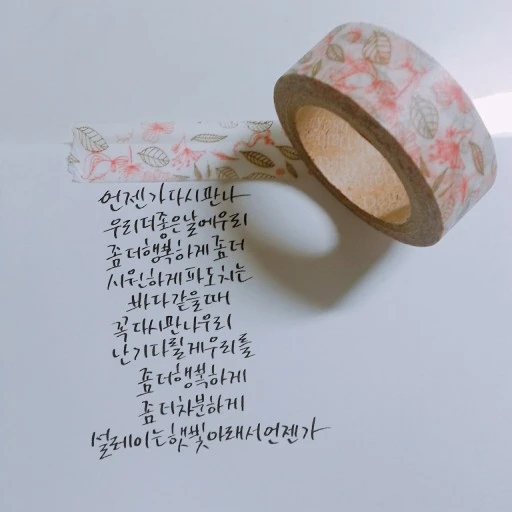 언젠가 다시 만나
우리 더 좋은 날에 우리
좀 더 행복하게 좀 더
시원하게 파도치는
바다 같을 때
꼭 다시 만나 우리
난 기다릴게 우리를
좀 더 행복하게
좀 더 차분하게
설레이는 햇빛 아래서 언젠가